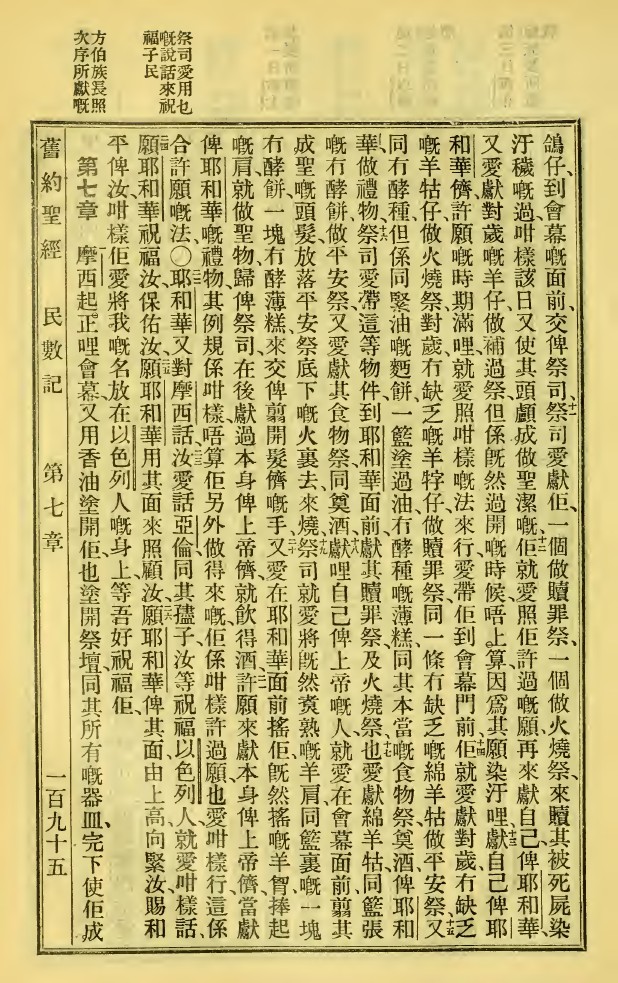 祭司愛用乜
嘅說話來祝
福子民
方伯族長照
次序所獻嘅
鴿仔、到會幕嘅面前、交俾祭司、十一祭司愛獻佢、一個做贖罪祭、一個做火燒祭、來贖其被死屍染
汙穢嘅過、咁樣該日又使其頭顱成做聖潔嘅、十二佢就愛照佢許過嘅願、再來獻自己俾耶和華、
又愛獻對歲嘅羊仔、做補過祭、但係旣然過開嘅時候、唔上算、因爲其願染汙哩、十三獻自己俾耶
和華儕、許願嘅時期滿哩、就愛照咁樣嘅法來行、愛帶佢到會幕門前、十四佢就愛獻對歲冇缺乏
嘅羊牯仔、做火燒祭、對歲冇缺乏嘅羊牸仔、做贖罪祭、同一條冇缺乏嘅綿羊牯、做平安祭、十五又
同冇酵種、但係同緊油嘅麵餅一籃、塗過油冇酵種嘅薄糕、同其本當嘅食物祭、奠酒、俾耶和
華做禮物、十六祭司愛帶這等物件、到耶和華面前、獻其贖罪祭、及火燒祭、十七也愛獻綿羊牯、同籃張
嘅冇酵餅、做平安祭、又愛獻其食物祭、同奠酒、十八獻哩自己俾上帝嘅人、就愛在會幕面前、翦其
成聖嘅頭髮、放落平安祭底下嘅火裏去來燒、十九祭司就愛將旣然煑熟嘅羊肩、同籃裏嘅一塊
冇酵餅、一塊冇酵薄糕、來交俾翦開髮儕嘅手、二十又愛在耶和華面前搖佢、旣然搖嘅羊胷、捧起
嘅肩、就做聖物歸俾祭司、在後獻過本身俾上帝儕、就飲得酒、二一許願來獻本身俾上帝儕、當獻
俾耶和華嘅禮物、其例規係咁樣、唔算佢另外做得來嘅、佢係咁樣許過願、也愛咁樣行、這係
合許願嘅法、〇二二耶和華又對摩西話、二三汝愛話亞倫同其孻子、汝等祝福以色列人、就愛咁樣話、
二四願耶和華祝福汝、保佑汝、二五願耶和華用其面來照顧汝、二六願耶和華俾其面由上高向緊汝、賜和
平俾汝、二七咁樣佢愛將我嘅名放在以色列人嘅身上、等吾好祝福佢、
第七章 摩西起正哩會幕、又用香油塗開佢、也塗開祭壇、同其所有嘅器皿、完下使佢成
舊約聖經 民數記 第七章 一百九十五